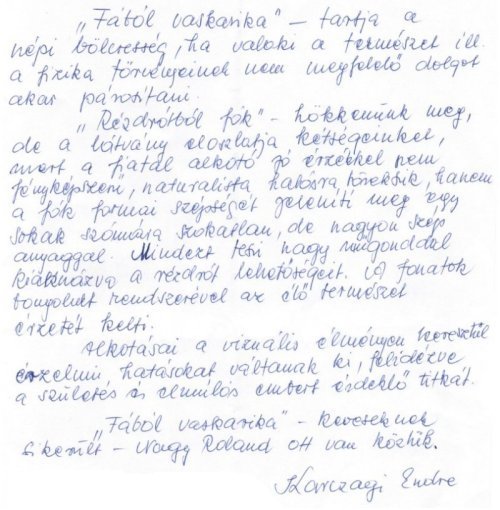 „Fából vaskarika" – tartja a
népi bölcsesség, ha valaki a természet ill.
a fizika törvényeinek nem megfelelő dolgot
akar párosítani.
„Rézdrótból fák" – hökkenünk meg,
de a látvány eloszlatja kétségeinket,
mert a fiatal alkotó jó érzékkel nem
fényképszerű, naturalista hatásra törekszik, hanem
a fák formai szépségét jeleníti meg egy
sokak számára szokatlan, de nagyon szép
anyaggal. Mindezt teszi nagy műgonddal
kiaknázva a rézdrót lehetőségeit. A fonatok
bonyolult rendszerével az élő természet
érzetét kelti.
Alkotásai a vizuális élményen keresztül
érzelmi hatásokat váltanak ki, felidézve
a születés és elmúlás embert érdeklő titkát.
„Fából vaskarika" – keveseknek
sikerült – Nagy Roland ott van köztük.
Karczagi Endre